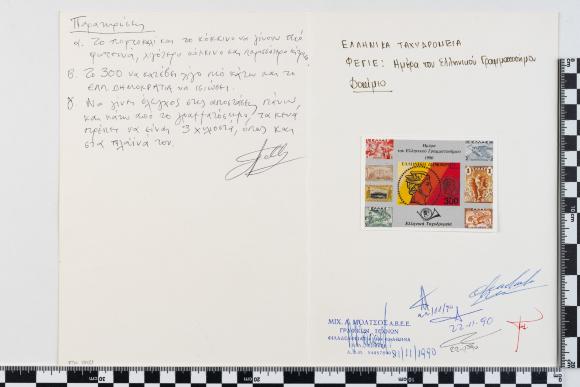 Παρατηρήσεις
α. Το πορτοκαλί και το κόκκινο να γίνουν πιό
φωτεινά, λιγότερο κόκκινο και περισσότερο κίτρινο
β. Το 300 να κατέβει λίγο πιό κάτω και το
ΕΛΛ. ΔΗΜΟΚΡΑΤΙΑ να ισιώσει.
γ Να γίνει έλεγχος στις αποστάσεις πάνω
και κάτω από το γραμματόσημο, τα κενά
πρέπει να είναι 3 χιλιοστά, όπως και
στα πλαϊνά του.
ΕΛΛΗΝΙΚΑ ΤΑΧΥΔΡΟΜΕΙΑ
ΦΕΓΙΕ: Ημέρα του Ελληνικού Γραμματοσήμου
Δοκίμιο
Ημέρα
του Ελληνικού Γραμματοσήμου
1990
ΕΛΛΗΝΙΚΗ ΔΗΜΟΚΡΑΤΙΑ
300
Ελληνικά Ταχυδρομεία
22/11/90
22-11-90
22-11-90
ΜΙΧ. Α. ΜΟΑΤΣΟΣ Α.Β.Ε.Ε.
ΓΡΑΦΙΚΩΝ ΤΕΧΝΩΝ
21/11/1990